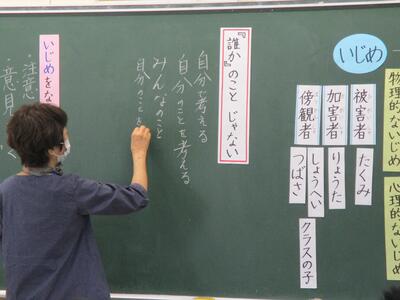 いじめ
物理的ないじめ
心理的ないじめ
被害者
たくみ
加害者
りょうた
しょうへい
傍観者
つばさ
クラスの子
『誰か』のこと じゃない
自分で考える
自分のことを考える
みんなのこと
自分のことを
いじめをな
・注意
・意見